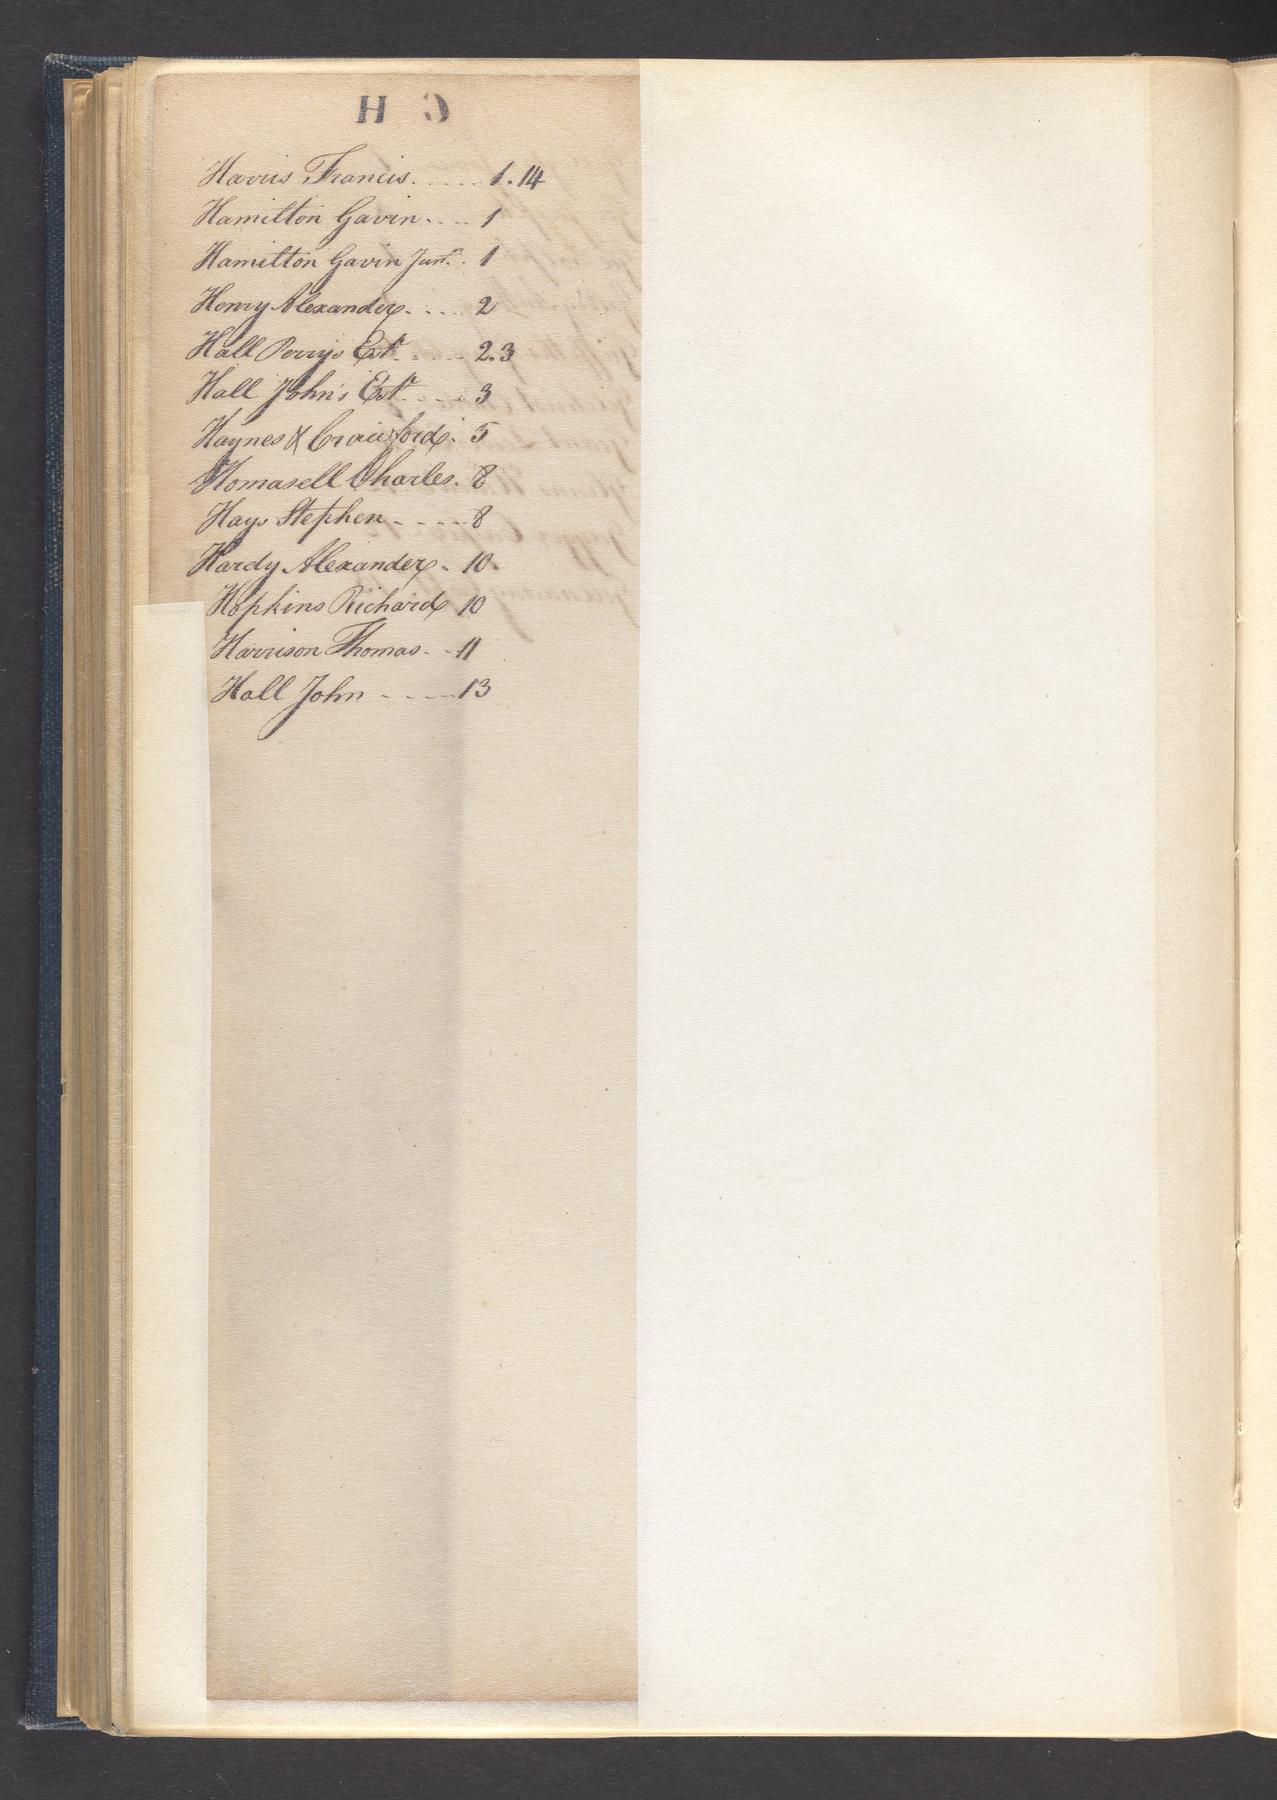 H
Harris Francis. ..... 1. 14
Hamilton Gavin.... 1
Hamilton Gavin Junr.. 1
Henry Alexander..... 2
Hall Perry's Estt. .... 2. 3
Hall John's Estt. .... 3
Haynes & Crawford. 5
Homasell Charles. 8
Hays Stephen - - - - - 8
Hardy Alexander - 10.
Hopkins Richard 10
Harrison Thomas - - 11
Hall John - - - - - 13